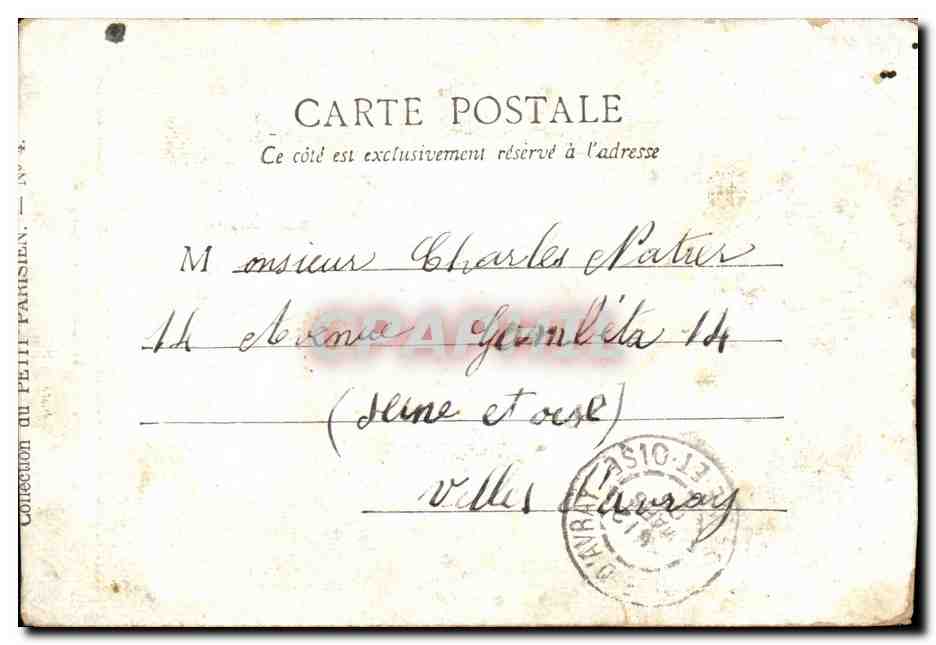 CARTE POSTALE
Ce côté est exclusivement réservé à l'adresse
Monsieur Charles Natrer
14 Avenue Gambéta 14
(Seine et oise)
Villes d'avray
Collection du PETIT PARISIEN. — Nº 4.
D'AVRAY
ET-OISE
MARS
CPARAMA